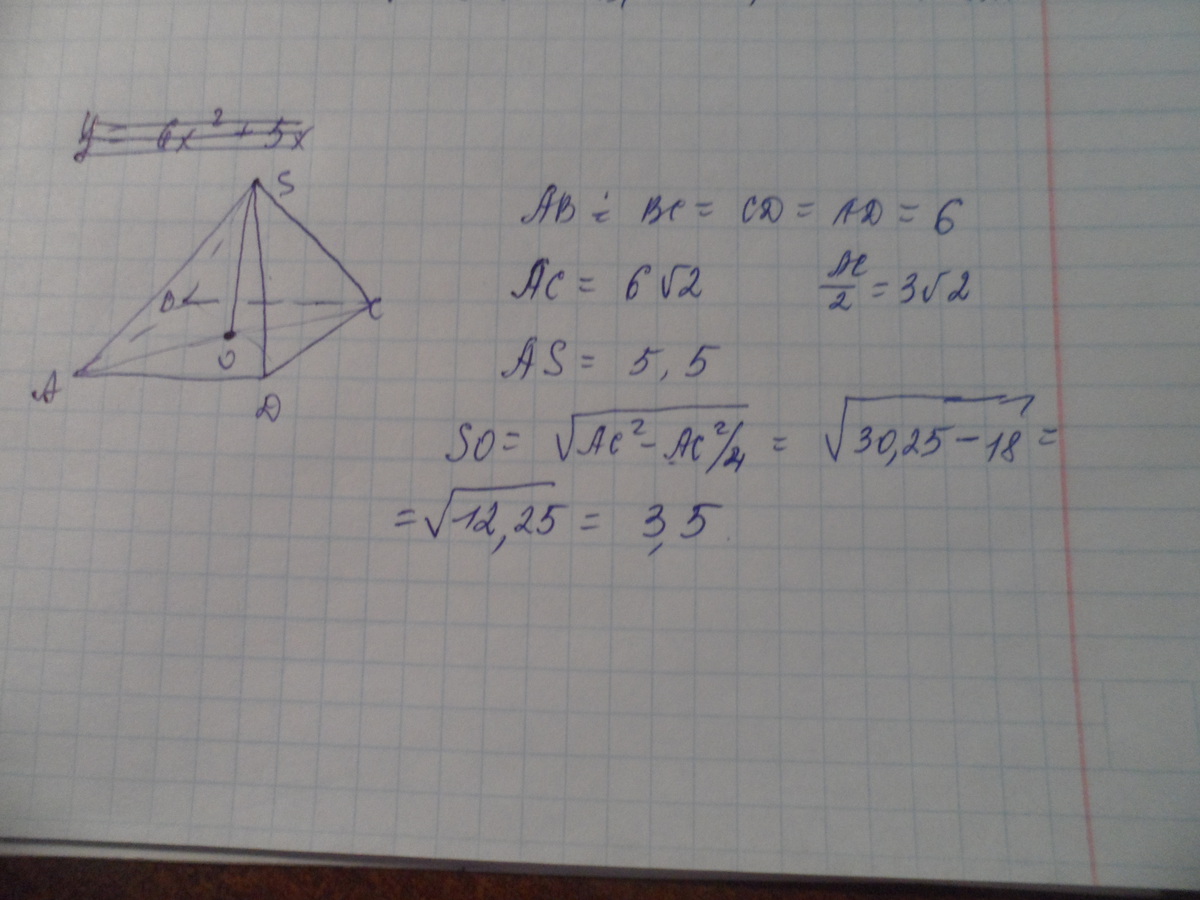 y = 6x² + 5x
S
B
C
O
A
D
AB = BC = CD = AD = 6
AC = 6√2 AC/2 = 3√2
AS = 5,5
SO = √AC² - AC²/4 = √30,25 - 18 =
= √12,25 = 3,5